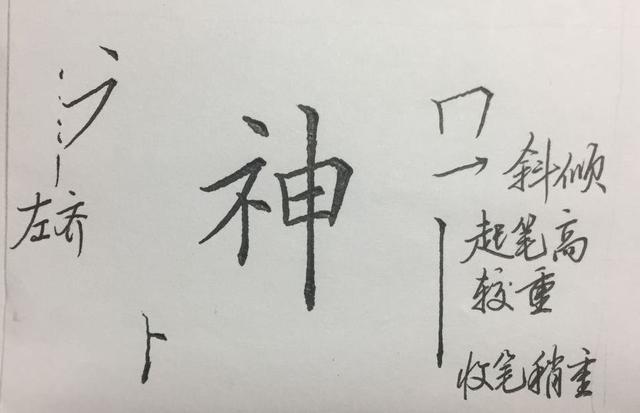 神
左齐
斜倾
起笔高
较重
收笔稍重